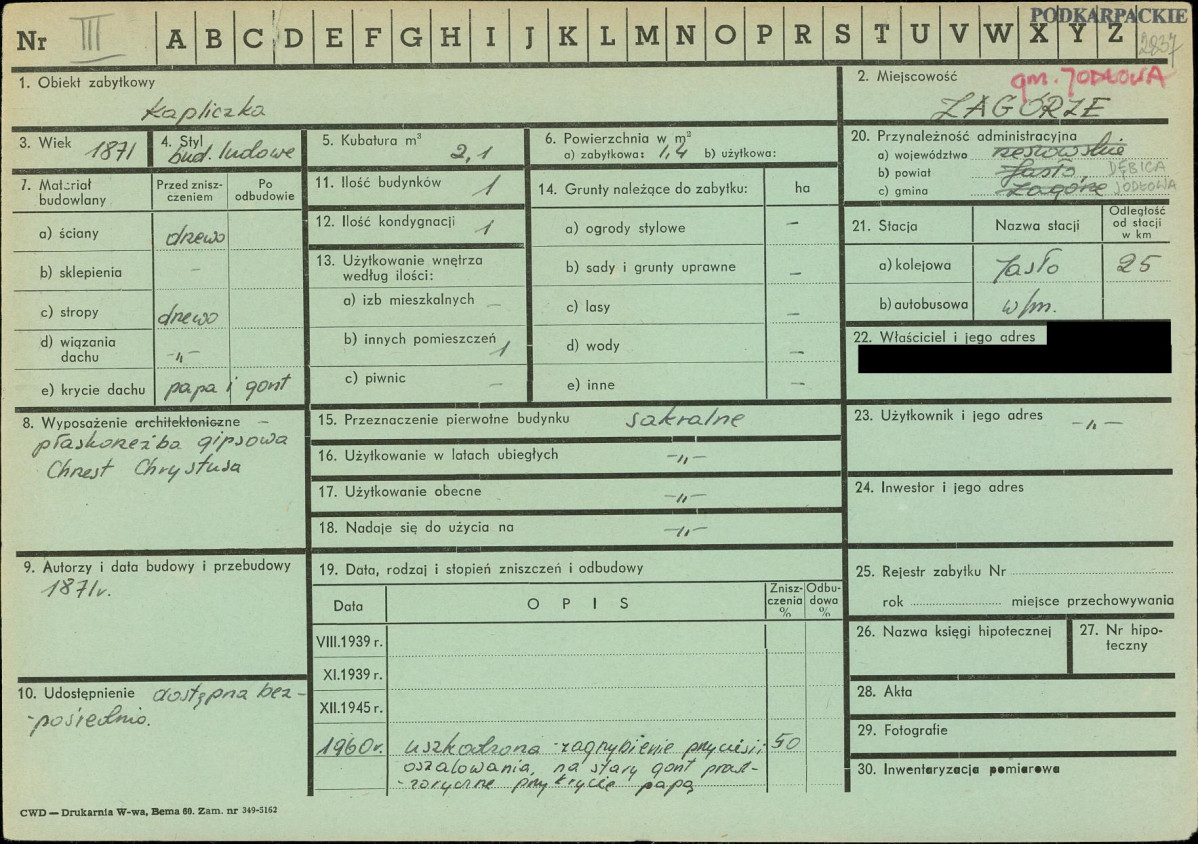 PODKARPACKIE
Nr III A B C D E F G H I J K L M N O P R S T U V W X Y Z
2837
1. Obiekt zabytkowy
Kapliczka
2. Miejscowość
gm. JODŁOWA
ZAGÓRZE
3. Wiek 1871
4. Styl
bud. ludowe
5. Kubatura m³
2,1
6. Powierzchnia w m²
a) zabytkowa: 1,4 b) użytkowa:
20. Przynależność administracyjna
a) województwo rzeszowskie
b) powiat Jasło, DĘBICA
c) gmina Zagórze JODŁOWA
7. Materiał budowlany
Przed zniszczeniem
Po odbudowie
a) ściany drewo
b) sklepienia –
c) stropy drewo
d) wiązania dachu –„–
e) krycie dachu papa i gont
11. Ilość budynków 1
12. Ilość kondygnacji 1
13. Użytkowanie wnętrza
według ilości:
a) izb mieszkalnych –
b) innych pomieszczeń 1
c) piwnic –
14. Grunty należące do zabytku: ha
a) ogrody stylowe –
b) sady i grunty uprawne –
c) lasy –
d) wody –
e) inne –
21. Stacja
Nazwa stacji
Odległość
od stacji
w km
a) kolejowa Jasło 25
b) autobusowa w/m.
22. Właściciel i jego adres
8. Wyposażenie architektoniczne –
płaskorzeźba gipsowa
Chrzest Chrystusa
15. Przeznaczenie pierwotne budynku sakralne
16. Użytkowanie w latach ubiegłych –„–
17. Użytkowanie obecne –„–
18. Nadaje się do użycia na –„–
23. Użytkownik i jego adres
–„–
24. Inwestor i jego adres
9. Autorzy i data budowy i przebudowy
1871r.
19. Data, rodzaj i stopień zniszczeń i odbudowy
Data
OPIS
Znisz-
czenia
%
Odbu-
dowa
%
VIII.1939 r.
XI.1939 r.
XII.1945 r.
1960r. uszkodzona - zagrzybienie przyciesi i 50
oszalowania, na stary gont prow-
-zoryczne przykrycie papą
25. Rejestr zabytku Nr
rok miejsce przechowywania
26. Nazwa księgi hipotecznej
27. Nr hipo-
teczny
10. Udostępnienie dostępna bez-
-pośrednio.
28. Akta
29. Fotografie
30. Inwentaryzacja pomiarowa
CWD — Drukarnia W-wa, Bema 60. Zam. nr 349-5162